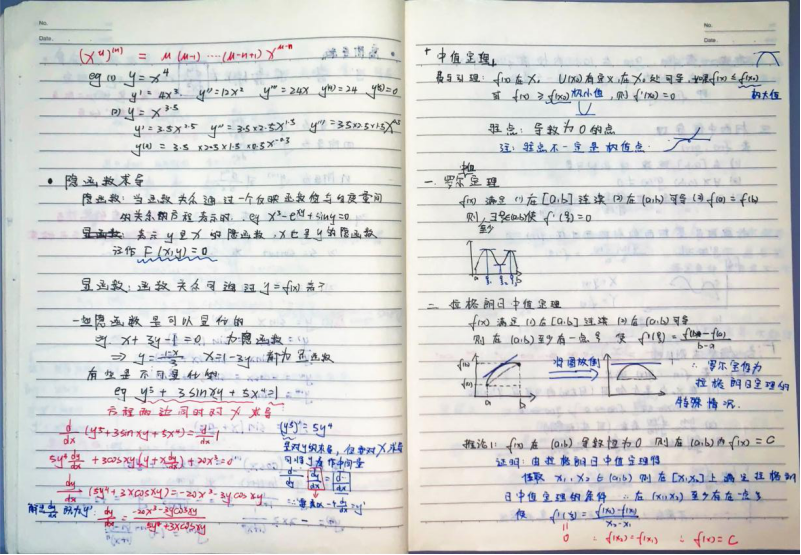 No.
Date.
(x^μ)^(n) = μ(μ-1)····(μ-n+1) x^μ-n
eg (1) y = x^4
y' = 4x^3 y'' = 12x^2 y''' = 24x y(4) = 24 y(5) = 0
(2) y = x^3.5
y' = 3.5x^2.5 y'' = 3.5×2.5x^1.5
y(4) = 3.5×2.5×1.5×0.5
• 隐函数求导
隐函数: 当函数关系通过一个
的关系的方程表示时. eg
表示 y 是 x 的隐函数, x 也是 y 的隐函数
记作 F(x,y) = 0
显函数: 函数关系可通过 y = f(x) 表示
一些隐函数是可以显化的
eg. x + 3y - 1 = 0. 为隐函数
⇒ y = (1-x)/3 x = 1-3y 都为显函数
有些是不可显化的
eg y^5 + 3sinxy + 5x^4 = 1
方程两边同时对 x 求导
d/dx (y^5 + 3sinxy + 5x^4) = d/dx 1
5y^4 dy/dx + 3cosxy (y + x dy/dx) + 20x^3 = 0
dy/dx (5y^4 + 3xcosxy) = -20x^3 - 3ycosxy
dy/dx = (-20x^3 - 3ycosxy)/(5y^4 + 3xcosxy)
(y^5)' = 5y^4
No.
Date.
中值定理
费马引理: f(x) 在 x₀ U(x₀) 有定义, 在 x₀ 处可导, 如果 f(x) ≤ f(x₀)
或 f(x) ≥ f(x₀), 则 f'(x₀) = 0
极小值
极大值
驻点: 导数为 0 的点
注: 驻点不一定是极值点
一. 罗尔定理
中值
f(x) 满足 (1) 在 [a,b] 连续 (2) 在 (a,b) 可导 (3) f(a) = f(b)
则 ∃ξ∈(a,b) 使 f'(ξ) = 0
至少
二. 拉格朗日中值定理
f(x) 满足 (1) 在 [a,b] 连续 (2) 在 (a,b) 可导
则在 (a,b) 至少有一点 ξ 使 f'(ξ) = (f(b)-f(a))/(b-a)
f(b)
f(a)
a b
将图放倒
∴ 罗尔定理为
拉格朗日定理的
特殊情况.
推论1: f(x) 在 (a,b) 导数恒为 0 则在 (a,b) 内 f(x) = C
证明: 由拉格朗日中值定理得
任取 x₁, x₂ ∈ (a,b) 则在 [x₁,x₂] 上满足拉格朗
日中值定理的条件 ∴ 在 (x₁,x₂) 至少存在一点 ξ
使 f'(ξ) = (f(x₂)-f(x₁))/(x₂-x₁)
0 ∴ f(x₂) = f(x₁) ∴ f(x) = C